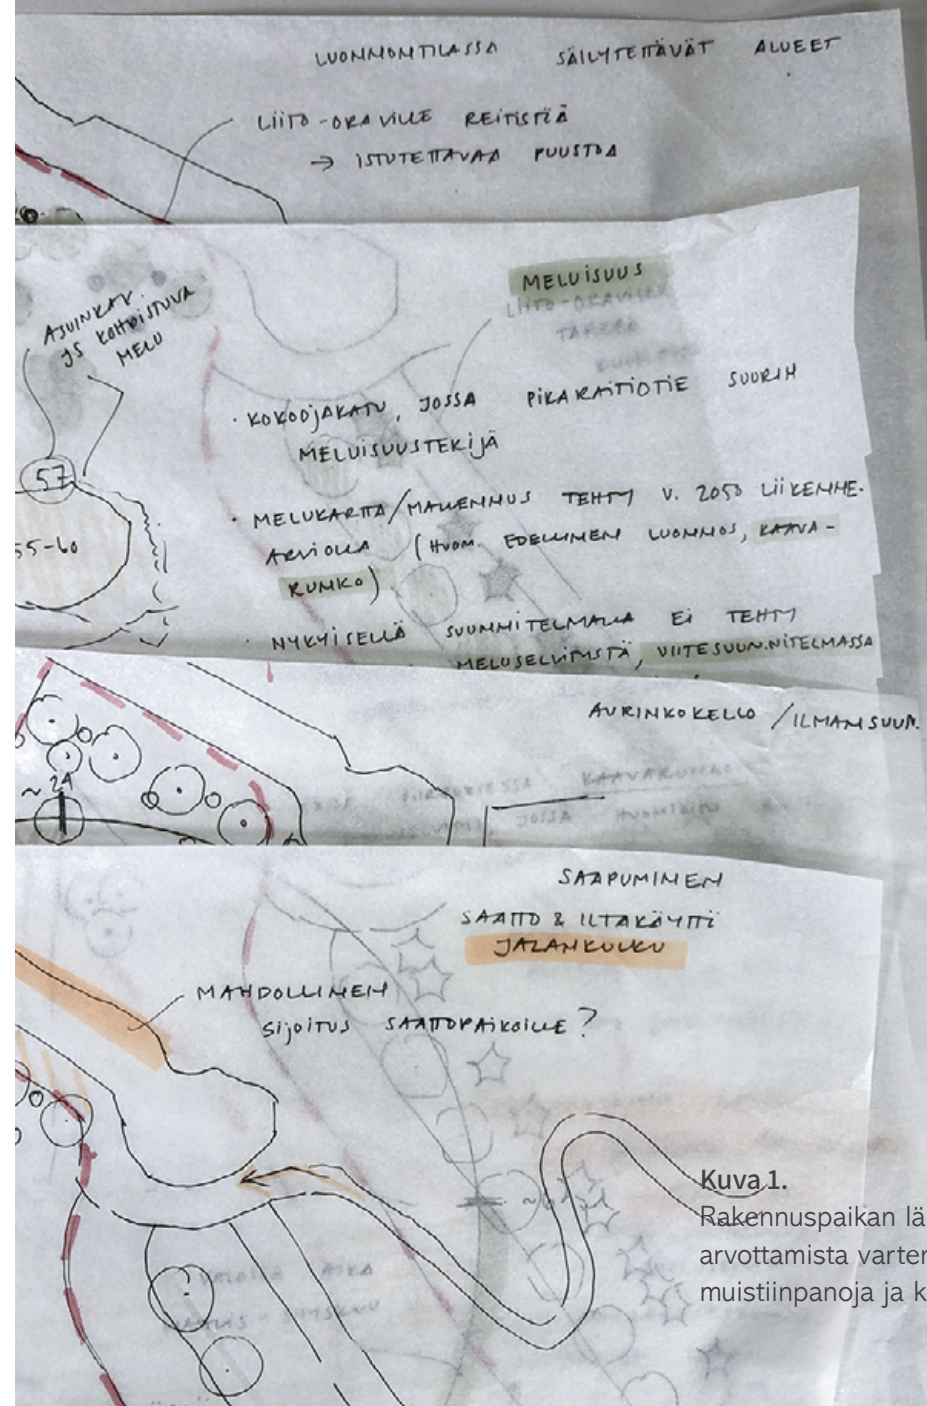 LUONNONTILASSA SÄILYTETTÄVÄT ALUEET
LIITO-ORAVILLE REITISTIÄ
→ ISTUTETTAVAA PUUSTOA
MELUISUUS
LIITO-ORAVILLE
TÄRKEÄ
ASUINRAK.
JS KOHDISTUVA
MELU
· KOKOOJAKATU, JOSSA PIKARAITIOTIE SUURIN
MELUISUUSTEKIJÄ
57
55-60
· MELUKARTTA/MALLENNUS TEHTY V. 2050 LIIKENNE-
ARVIOLLA (HUOM. EDELLINEN LUONNOS, KAAVA-
RUNKO)
· NYKYISELLÄ SUUNNITELMALLA EI TEHTY
MELUSELVITYSTÄ, VIITESUUNNITELMASSA
AURINKOKELLO / ILMANSUUN.
KAAVARUNKO
JOSSA HUOMIOITU
~24
SAAPUMINEN
SAATTO & ILTAKÄYTTÖ
JALANKULKU
MAHDOLLINEN
SIJOITUS SAATTOPAIKOILLE?
Kuva 1.
Rakennuspaikan lä
arvottamista varten
muistiinpanoja ja k
VALOISA AIKA